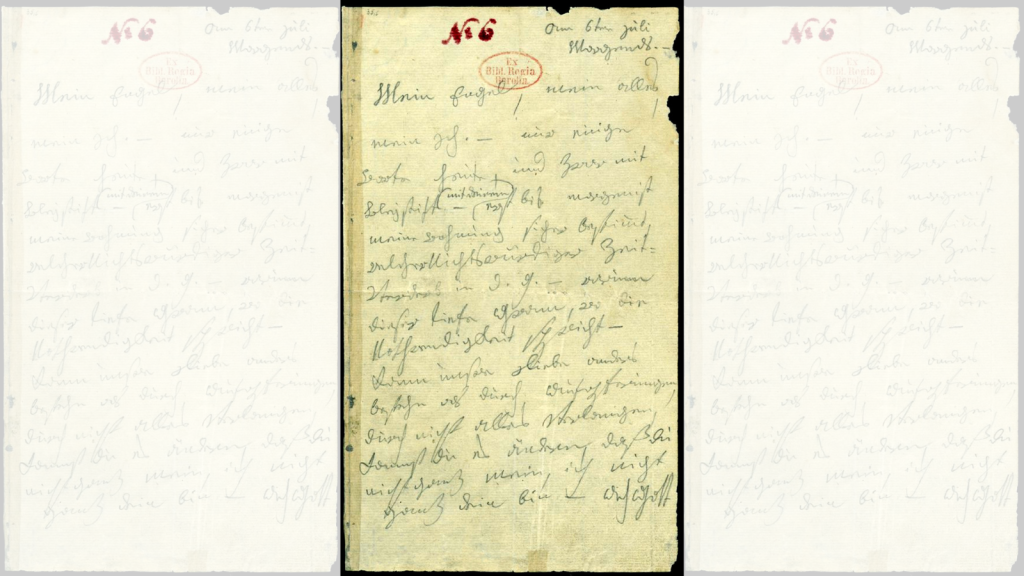 No 6
am 6ten Juli
Morgends. —
Ex
Bibl. Regia
Berolin.
Mein Engel, mein alles,
mein Ich. — nur einige
Worte heute, und zwar mit
Bleystift — (mit deinem) erst bis morgen ist
meine Wohnung sicher bestimmt,
welcher Nichtswürdiger Zeit-
Verderb in d. g. — warum
dieser tiefe Gram, wo die
Nothwendigkeit spricht —
Kann unsre Liebe anders
bestehn als durch Aufopferungen,
durch nicht alles verlangen,
kannst du es ändern, daß du
nicht ganz mein, ich nicht
ganz dein bin — Ach Gott